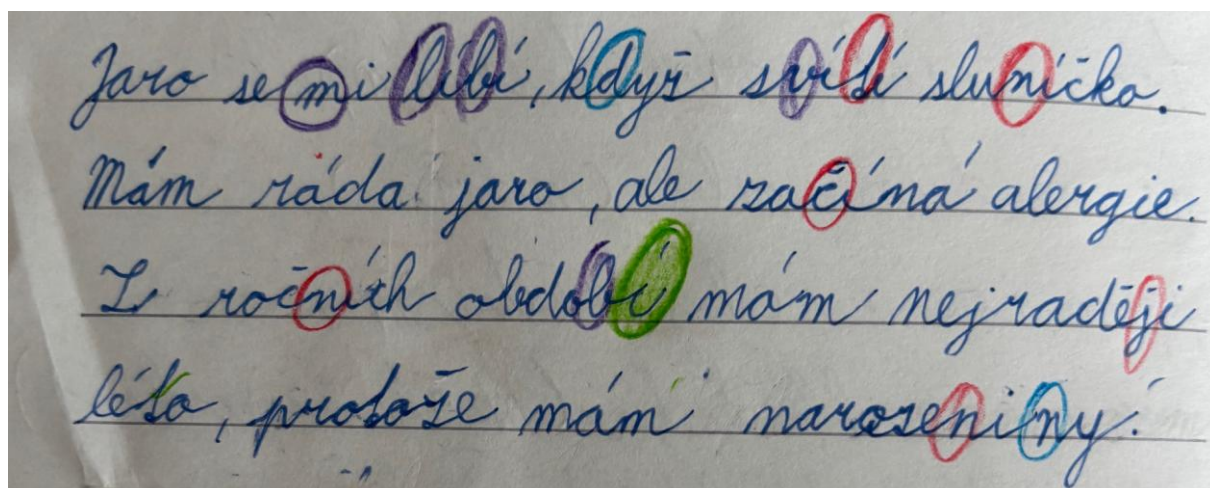 Jaro se mi líbí, když svítí sluníčko.
Mám ráda jaro, ale začíná alergie.
Z ročních období mám nejraději
léto, protože mám narozeniny.